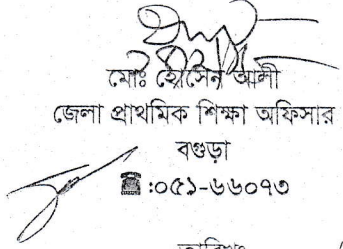 মোঃ হোসেন আলী
জেলা প্রাথমিক শিক্ষা অফিসার
বগুড়া
☎:০৫১-৬৬০৭৩
তারিখঃ